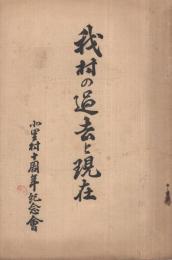 我村の過去と現在
小里村十周年紀念會